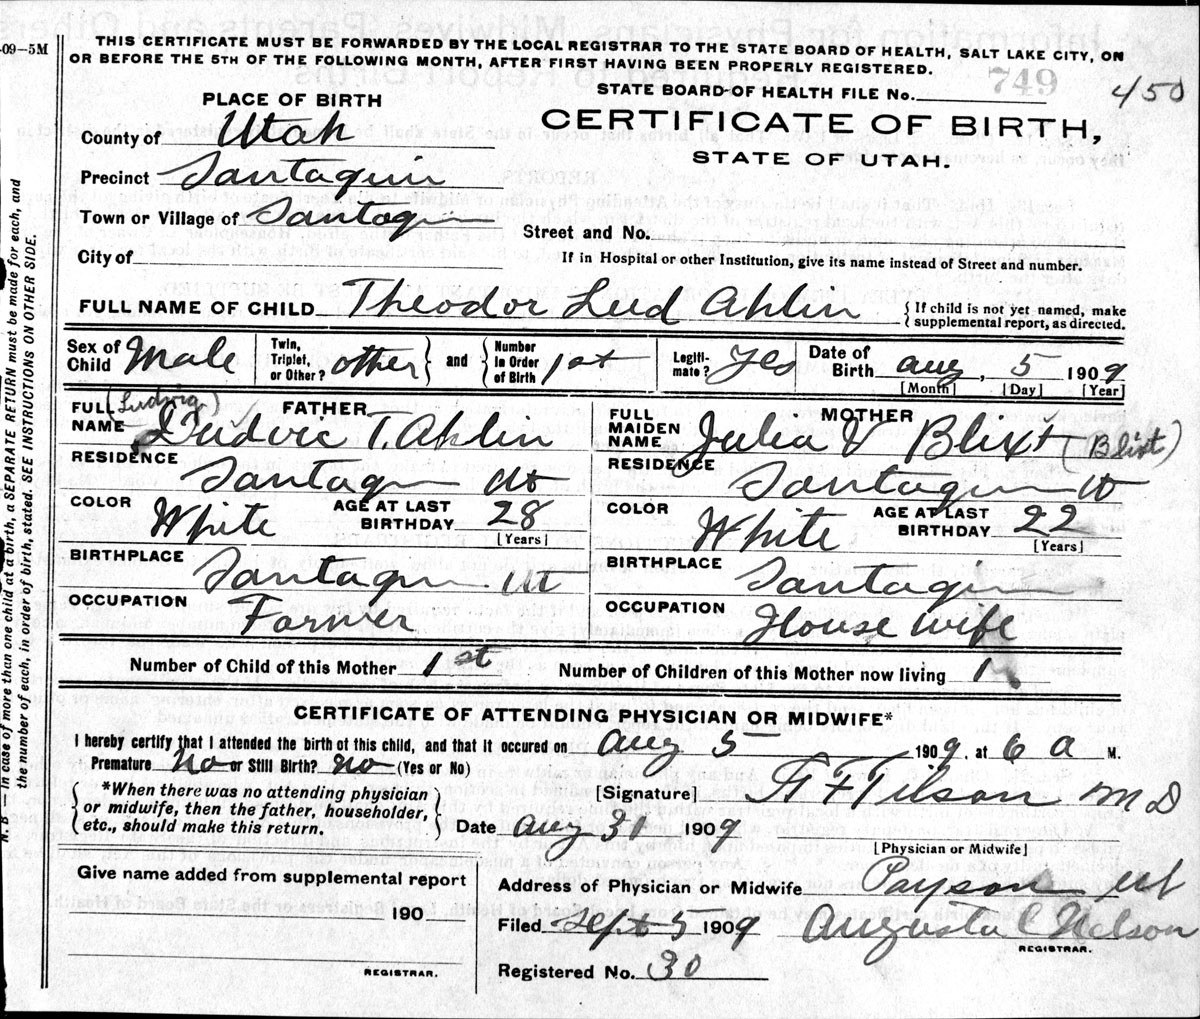 -09-5M
THIS CERTIFICATE MUST BE FORWARDED BY THE LOCAL REGISTRAR TO THE STATE BOARD OF HEALTH, SALT LAKE CITY, ON
OR BEFORE THE 5TH OF THE FOLLOWING MONTH, AFTER FIRST HAVING BEEN PROPERLY REGISTERED.
749
450
STATE BOARD OF HEALTH FILE No.
PLACE OF BIRTH
CERTIFICATE OF BIRTH,
STATE OF UTAH.
County of Utah
Precinct Santaquin
Town or Village of Santaquin
Street and No.
City of
If in Hospital or other Institution, give its name instead of Street and number.
FULL NAME OF CHILD Theodor Lud Ahlin
{ If child is not yet named, make
supplemental report, as directed.
Sex of Child Male
Twin, Triplet, or Other? other } and { Number in Order of Birth 1st
Legiti-mate? Yes
Date of Birth Aug, 5 1909
[Month] [Day] [Year]
FATHER
FULL NAME (Ludwig) Ludvic T. Ahlin
RESIDENCE Santaquin Ut
COLOR White AGE AT LAST BIRTHDAY 28
[Years]
BIRTHPLACE Santaquin Ut
OCCUPATION Farmer
MOTHER
FULL MAIDEN NAME Julia V Blixt (Blixt)
RESIDENCE Santaquin Ut
COLOR White AGE AT LAST BIRTHDAY 22
[Years]
BIRTHPLACE Santaquin
OCCUPATION House wife
Number of Child of this Mother 1st Number of Children of this Mother now living 1
CERTIFICATE OF ATTENDING PHYSICIAN OR MIDWIFE*
I hereby certify that I attended the birth of this child, and that it occured on Aug 5 1909, at 6 a M.
Premature No or Still Birth? no (Yes or No)
{ *When there was no attending physician
or midwife, then the father, householder,
etc., should make this return. }
[Signature] Tilson MD
Date Aug 31 1909
[Physician or Midwife]
Give name added from supplemental report
190
REGISTRAR.
Address of Physician or Midwife Payson Ut
Filed Sept 3 1909 Augusta C Nelson
REGISTRAR.
Registered No. 30
N. B.—In case of more than one child at a birth, a SEPARATE RETURN must be made for each, and
the number of each, in order of birth, stated. SEE INSTRUCTIONS ON OTHER SIDE.